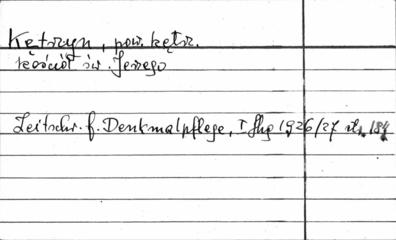 Kętrzyn, pow. kętrz.
kościół św. Jerzego
Zeitschr. f. Denkmalpflege, I Jhg 1926/27 str. 184